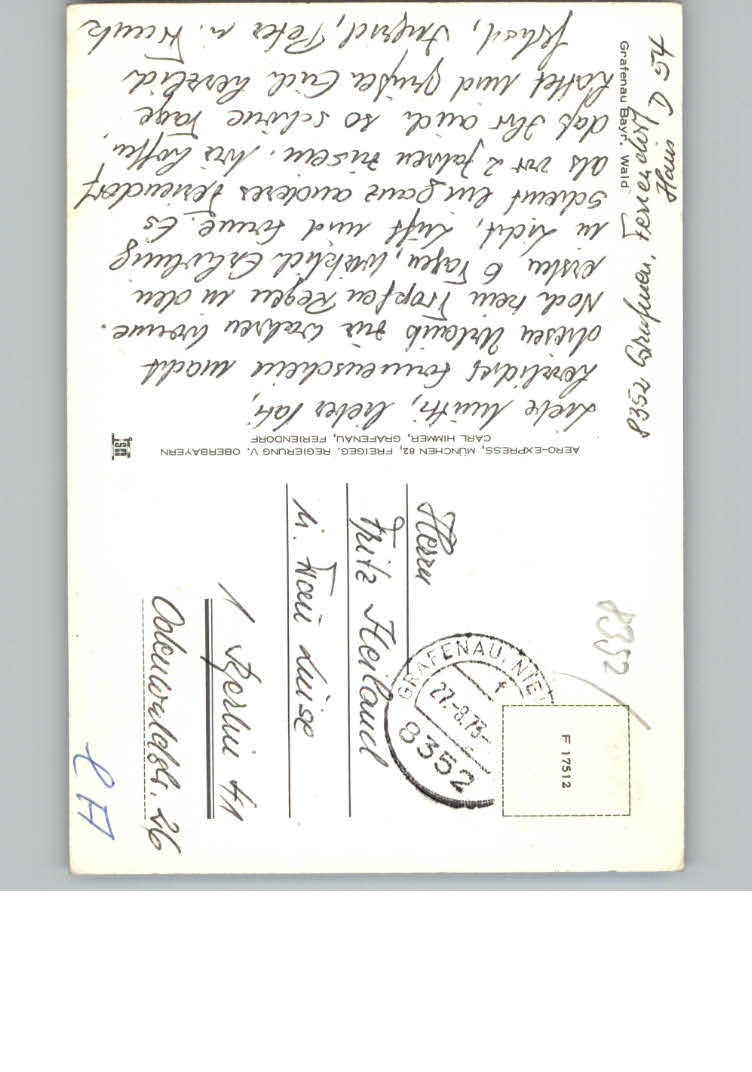 8352 Grafenau, Feriendorf
Haus D 54
Grafenau Bayr. Wald
Liebe Mutti, lieber Vati,
herrlicher Sonnenschein macht
diesen Urlaub zur wahren Wonne.
Noch kein Tropfen Regen in den
ersten 6 Tagen, wirklich Erholung
in Licht, Luft und Sonne. Es
scheint ein ganz anderes Feriendorf
als vor 2 Jahren zu sein. Wir hoffen,
daß Ihr auch so schöne Tage
hattet und grüßen Euch herzlich
Ingrid, Peter u. Frank
AERO-EXPRESS, MÜNCHEN 82, FREIGEG. REGIERUNG V. OBERBAYERN
CARL HIMMER, GRAFENAU, FERIENDORF
8352
F 17512
GRAFENAU, NIE
f
27.-8.73-
8352
Herrn
Fritz Heiland
u. Frau Luise
1 Berlin 41
Odenwaldstr. 26